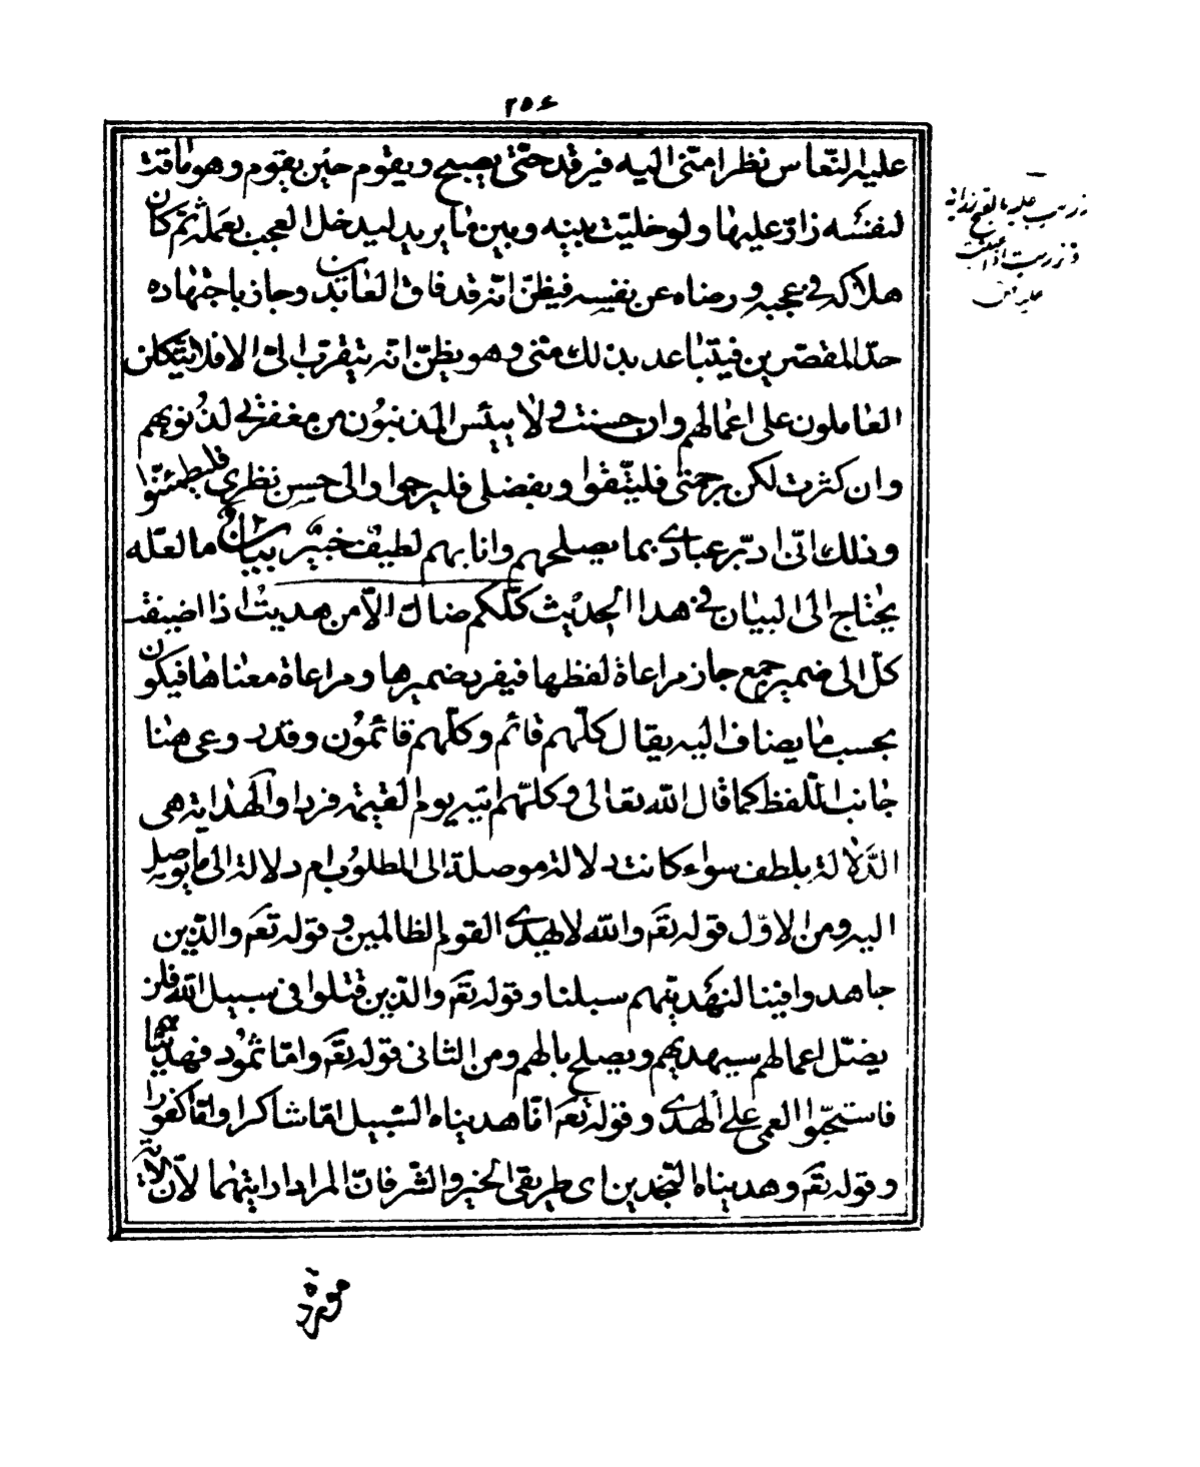 ٢٥۶
عليه النّعاس نظرا منّى اليه فيرقد حتّى يصبح ويقوم حين يقوم وهو ماقت
لنفسه زار عليها ولو خليّت بينه وبين ما يريد ليدخل العجب بعمله ثم كان
هلاكه فى عجبه ورضاه عن نفسه فيظنّ انّه قد فاق العابدين وجاز باجتهاده
حدّ المقصّرين فيتباعد بذلك منّى وهو يظنّ انّه يتقرّب الىّ الا فلا يتّكلن
العاملون على اعمالهم وان حسنت ولا ييئس المذنبون من مغفرتى لذنوبهم
وان كثرت لكن برحمتى فليثقوا وبفضلى فليرجوا والى حسن نظرى فليطمئنّوا
وذلك انّى ادبّر عبادى بما يصلحهم وانا بهم لطيف خبير بيان ما لعلّه
يحتاج الى البيان فى هذا الحديث كلّكم ضال الّا من هديت اذا اضيفت
كلّ الى ضمير جمع جاز مراعاة لفظها فيفرد ضميرها ومراعاة معناها فيكون
بحسب ما يضاف اليه يقال كلّهم قائم وكلّهم قائمون وقد روعى هنا
جانب اللّفظ كما قال الله تعالى وكلّهم اتيه يوم القيمة فردا والهداية هى
الدّلالة بلطف سواء كانت دلالة موصلة الى المطلوب ام دلالة الى ما يوصل
اليه ومن الاوّل قوله تعَم والله لا يهدى القوم الظالمين وقوله تعَم والذّين
جاهدوا فينا لنهدينّهم سبلنا وقوله تعَم والذّين قتلوا فى سبيل الله فلن
يضلّ اعمالهم سيهديهم ويصلح بالهم ومن الثانى قوله تعَم وامّا ثمود فهديناهم
فاستحبّوا العمى على الهدى وقوله تعَم انّا هديناه السّبيل امّا شاكرا وامّا كفورا
وقوله تعَم وهديناه النّجدين اى طريقى الخير والشّر فانّ المراد اراءيتهما لانّ الاية